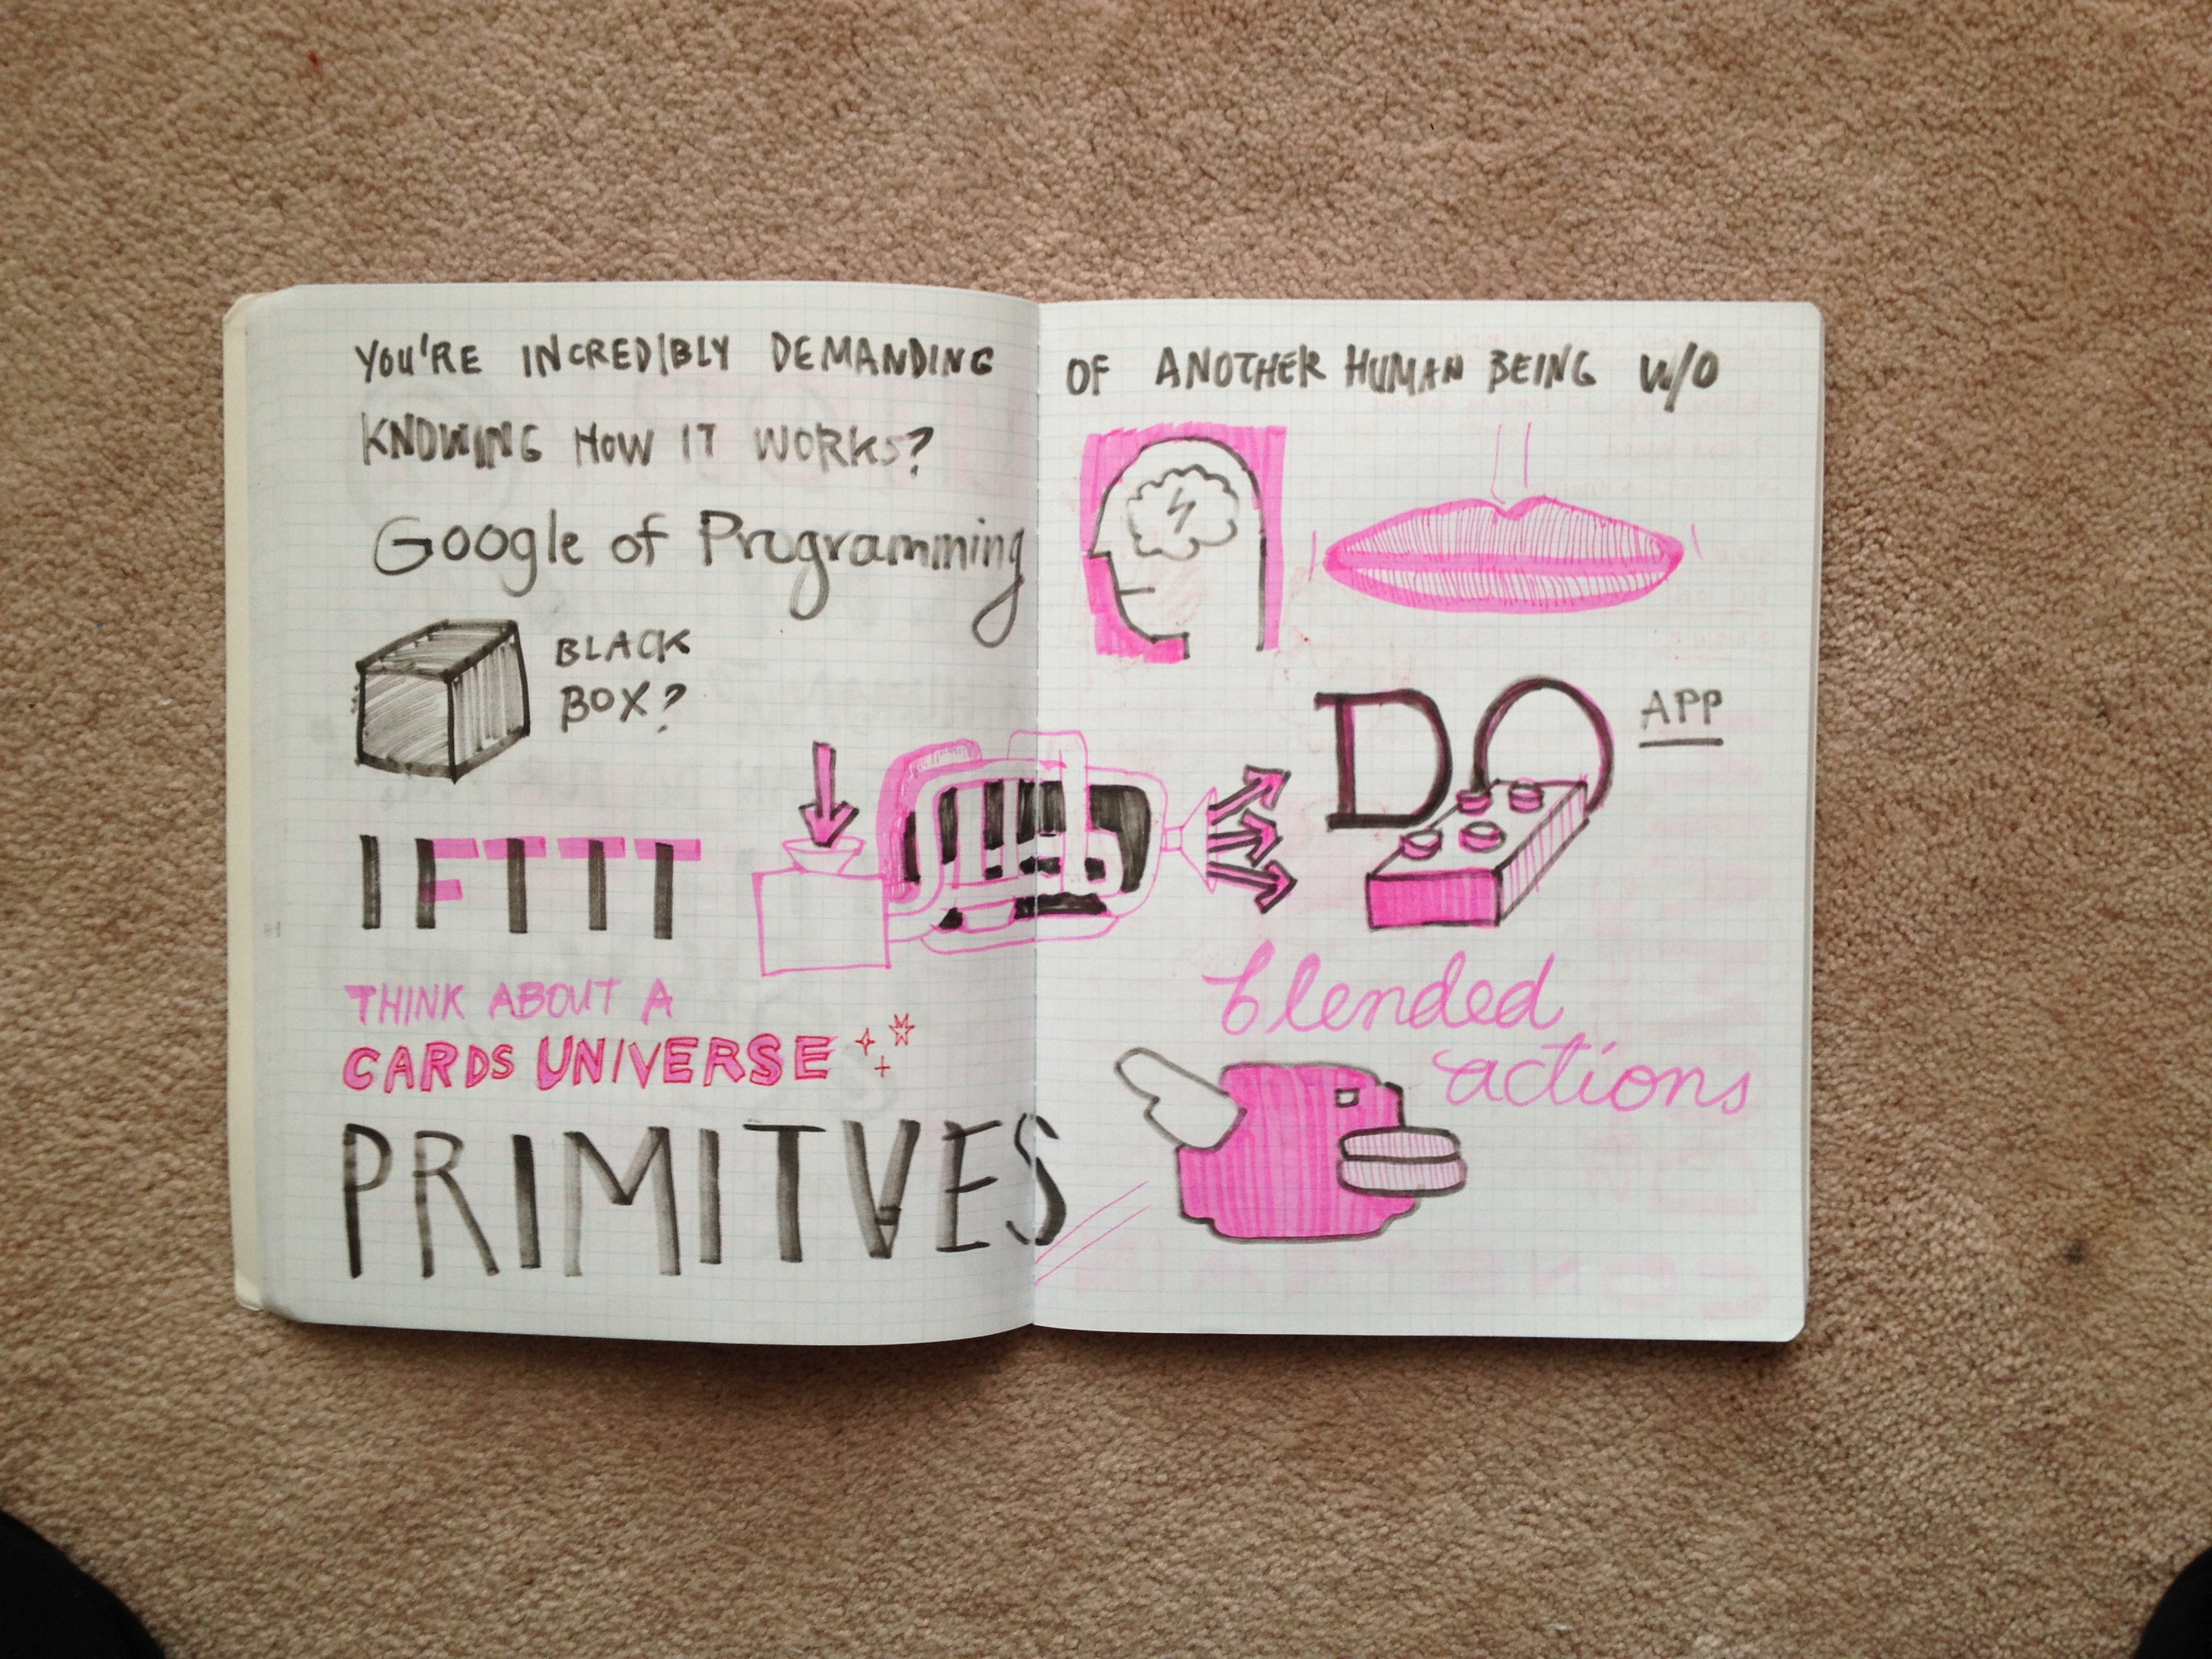 YOU'RE INCREDIBLY DEMANDING OF ANOTHER HUMAN BEING W/O
KNOWING HOW IT WORKS?
Google of Programming
BLACK
BOX?
DO APP
IFTTT
THINK ABOUT A
CARDS UNIVERSE
blended
actions
PRIMITVES